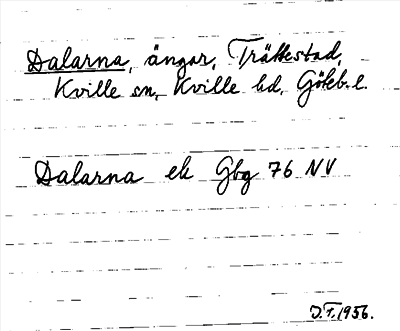 Dalarna, ängar, Trättestad,
Kville sn, Kville hd, Göteb. l.
Dalarna ek Gbg 76 NV
J.T. 1956.